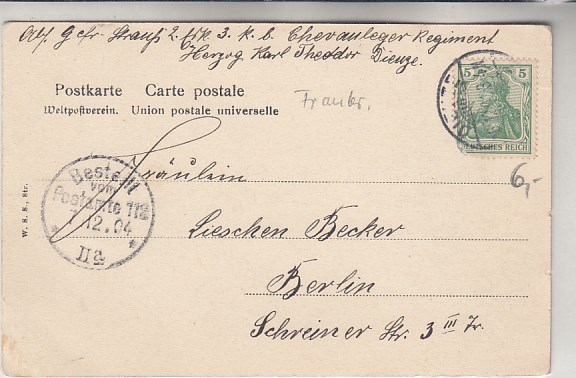 Abs. Gefr. Strauß 2. Esk 3. K. b. Chevauleger Regiment
Herzog Karl Theodor Dieuze.
Postkarte Carte postale
Weltpostverein. Union postale universelle
5 5
DEUTSCHES REICH
6,-
Fräulein
Bestellt
vom
Postamte 112
7.12.04
IIa
Lieschen Becker
Berlin
Schreiner Str. 3 III Tr.
W. S. S., Str.